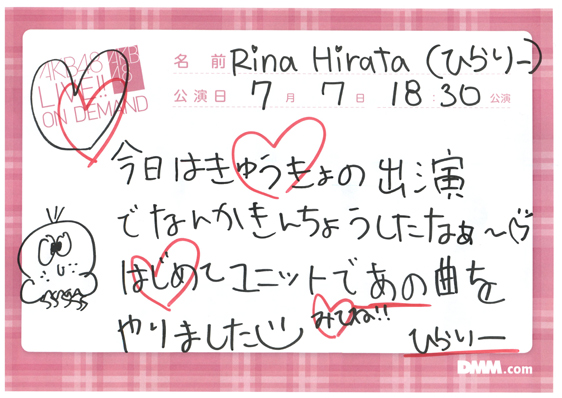 AKB48
LIVE!!
ON DEMAND
AKB
48
名前 Rina Hirata (ひらりー)
公演日 7月 7日 18:30 公演
今日はきゅうきょの出演
でなんかきんちょうしたなぁ〜
はじめてユニットであの曲を
やりました
みてね!!
ひらりー
DMM.com